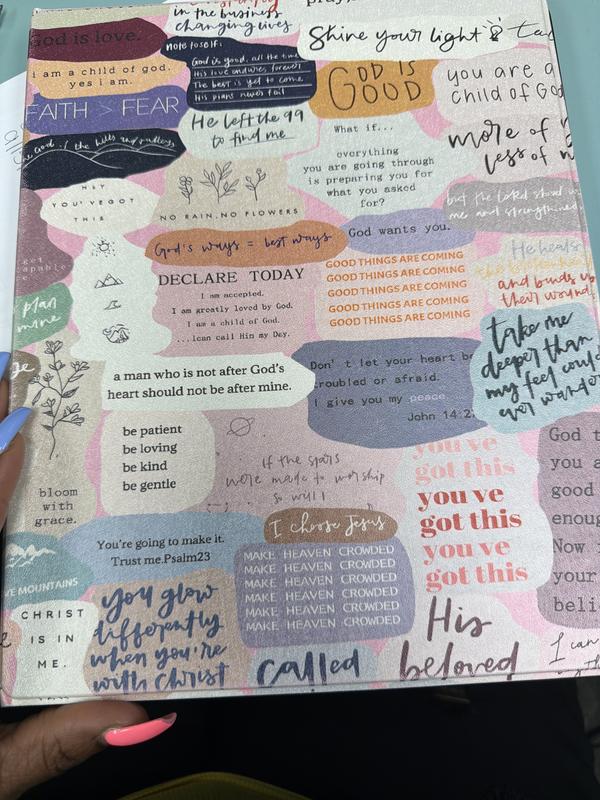 in the business
changing lives
God is love.
note to self:
God is good, all the time
His love endures forever
The best is yet to come
His plans never fail
Shine your light
i am a child of god.
yes i am.
GOD IS
GOOD
you are a
child of God
FAITH > FEAR
He left the 99
to find me
What if...
everything
you are going through
is preparing you for
what you asked
for?
more of
less of
God of the hills and valleys
HEY
YOU'VE GOT
THIS
NO RAIN. NO FLOWERS
but the Lord stood
me and strengthened
God's ways = best ways
God wants you.
He heals
the brokenhearted
and binds up
their wounds
DECLARE TODAY
I am accepted.
I am greatly loved by God.
I am a child of God.
...Ican call Him my Day.
GOOD THINGS ARE COMING
GOOD THINGS ARE COMING
GOOD THINGS ARE COMING
GOOD THINGS ARE COMING
GOOD THINGS ARE COMING
plan
mine
take me
deeper than
my feet could
ever wander
a man who is not after God's
heart should not be after mine.
Don' t let your heart be
troubled or afraid.
I give you my peace.
John 14:2
be patient
be loving
be kind
be gentle
if the stars
were made to worship
so will I
you've
got this
you've
got this
you ve
got this
God
you a
good
enoug
Now
your
beli
bloom
with
grace.
You're going to make it.
Trust me.Psalm23
I choose Jesus
MAKE HEAVEN CROWDED
MAKE HEAVEN CROWDED
MAKE HEAVEN CROWDED
MAKE HEAVEN CROWDED
MAKE HEAVEN CROWDED
MAKE HEAVEN CROWDED
VE MOUNTAINS
CHRIST
IS IN
ME.
you glow
differently
when you're
with christ
called
His
beloved
I can